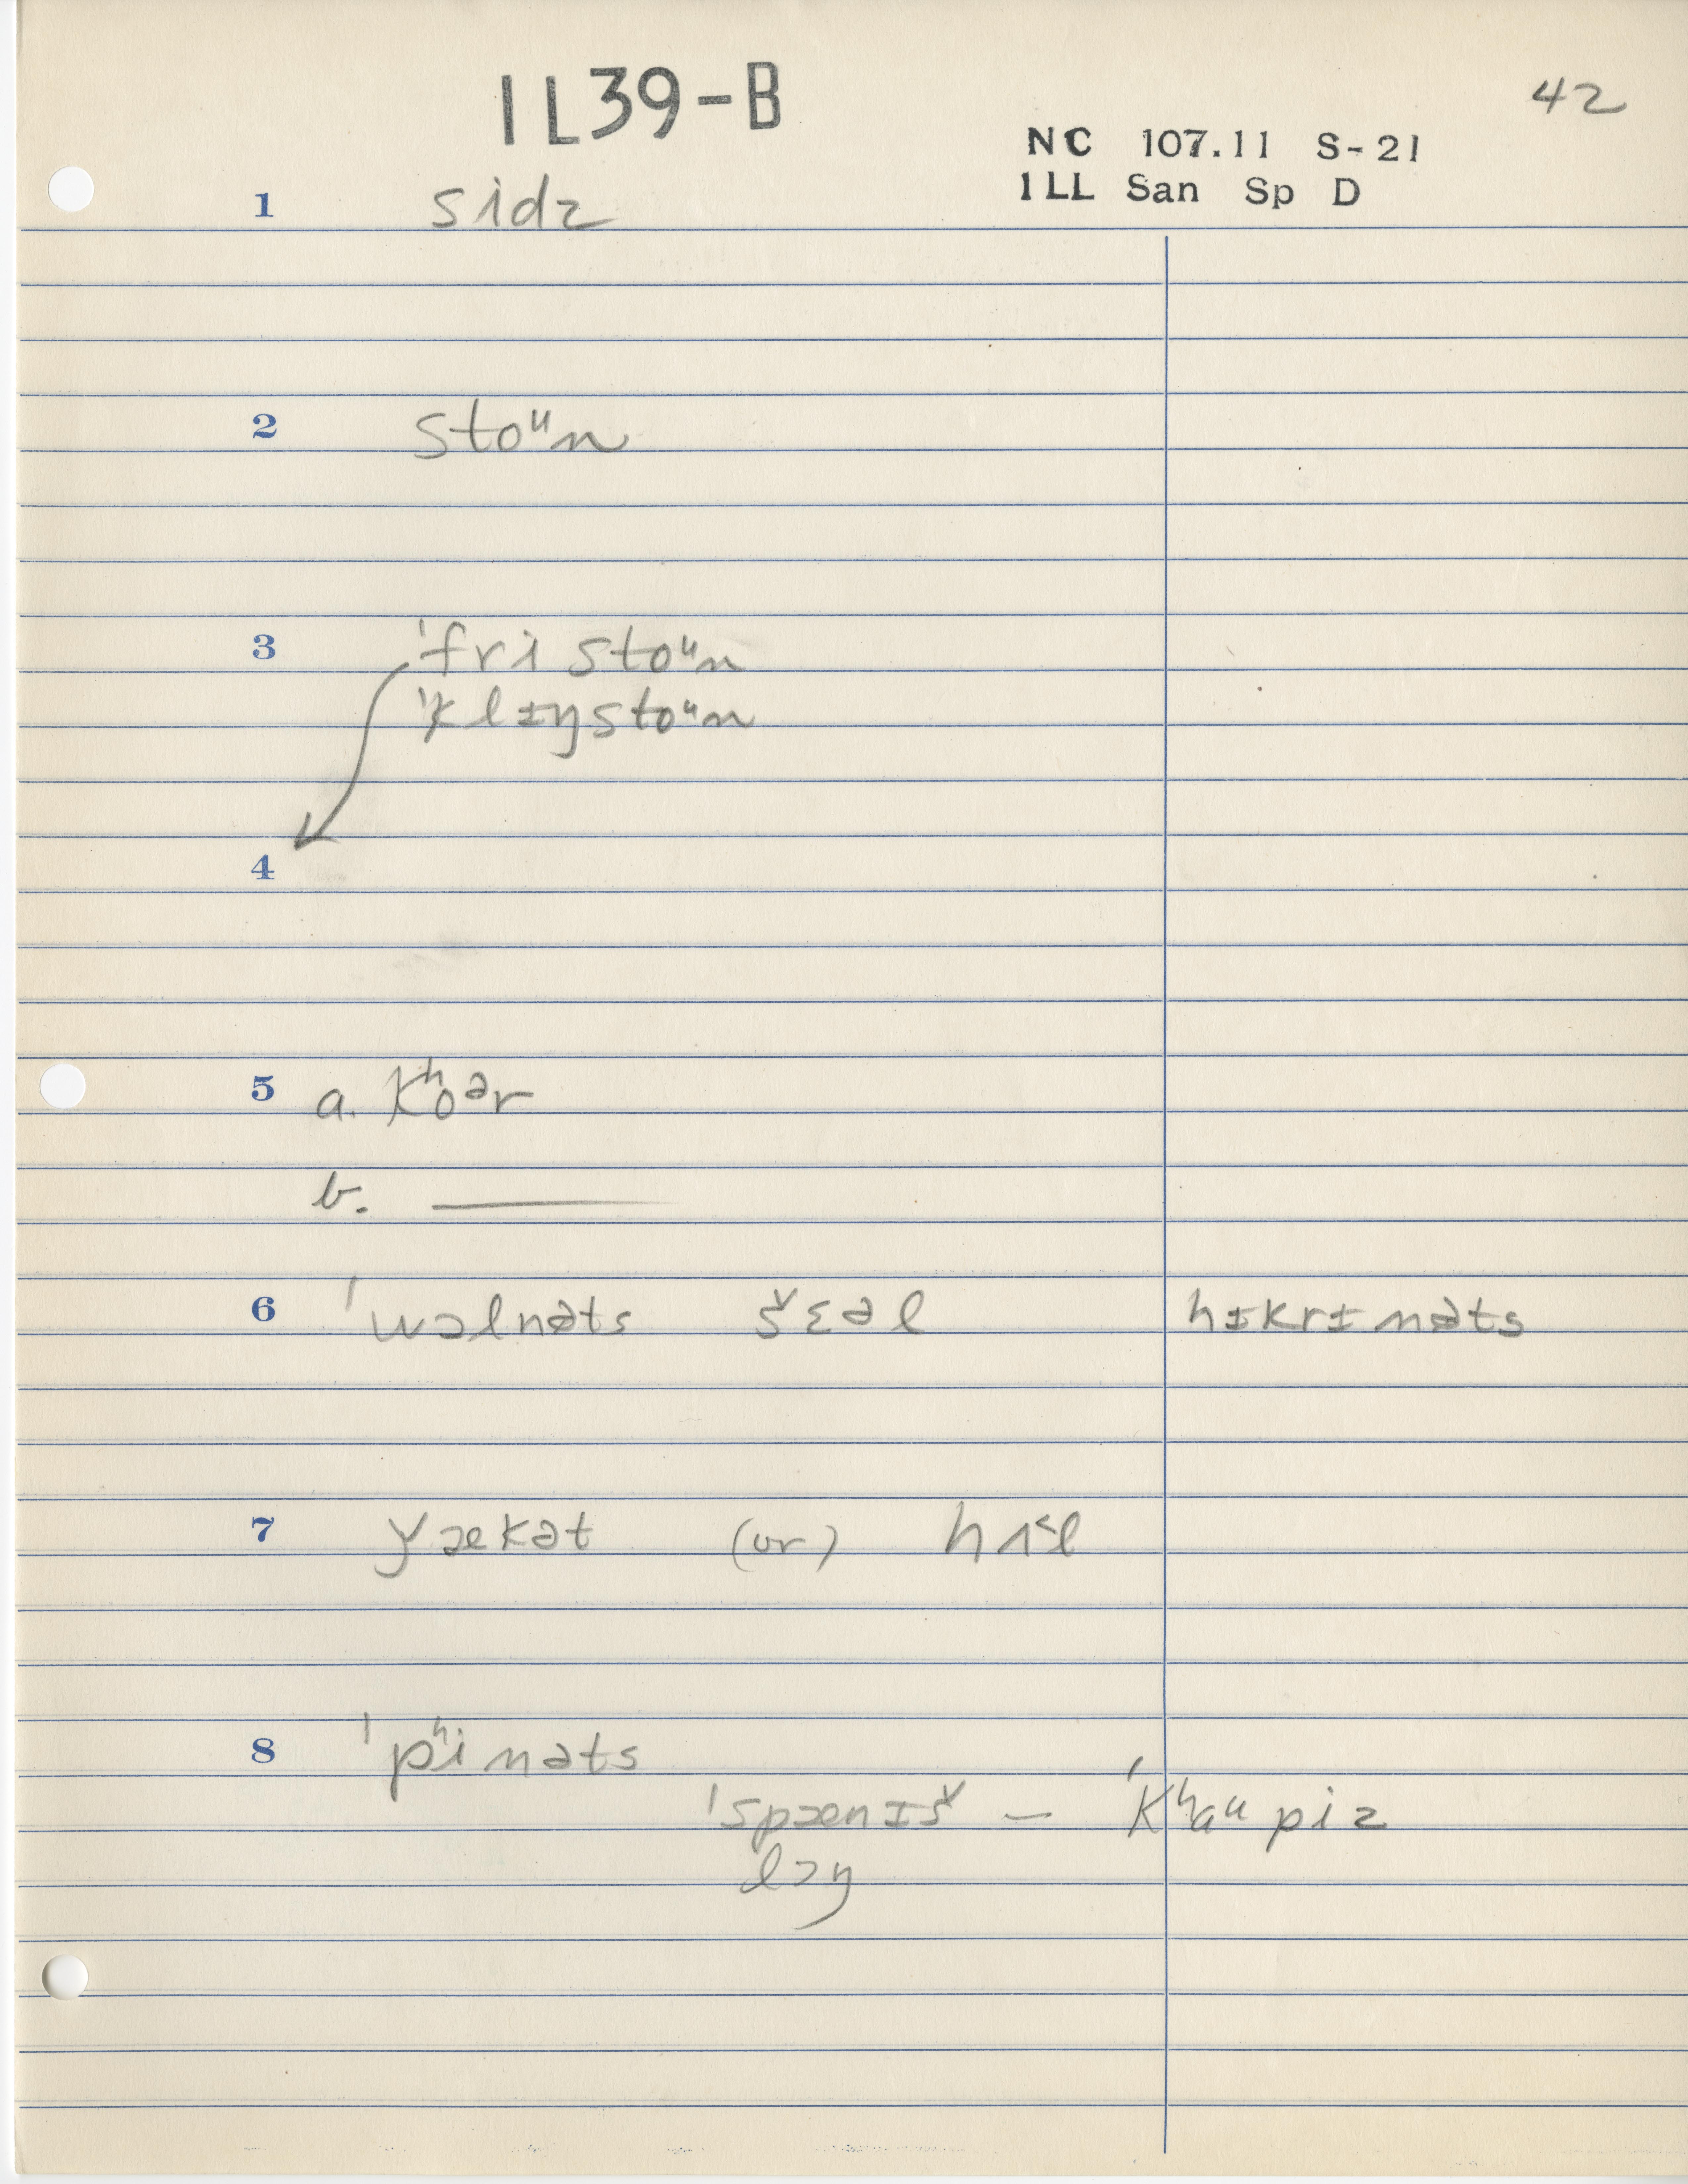 IL39-B
42
NC 107.11 S-21
ILL San Sp D
1 sidz
2 stoᵘn
3 'fri stoᵘn
'klɪŋstoᵘn
4
5 a. kʰoᵊr
b. ———
6 'wɔlnəts šɛəl hɪkrɪ nəts
7 ǰækət (or) hʌ˂l
8 'pʰinəts
'spænɪš — 'kʰaᵘpiz
lɔŋ